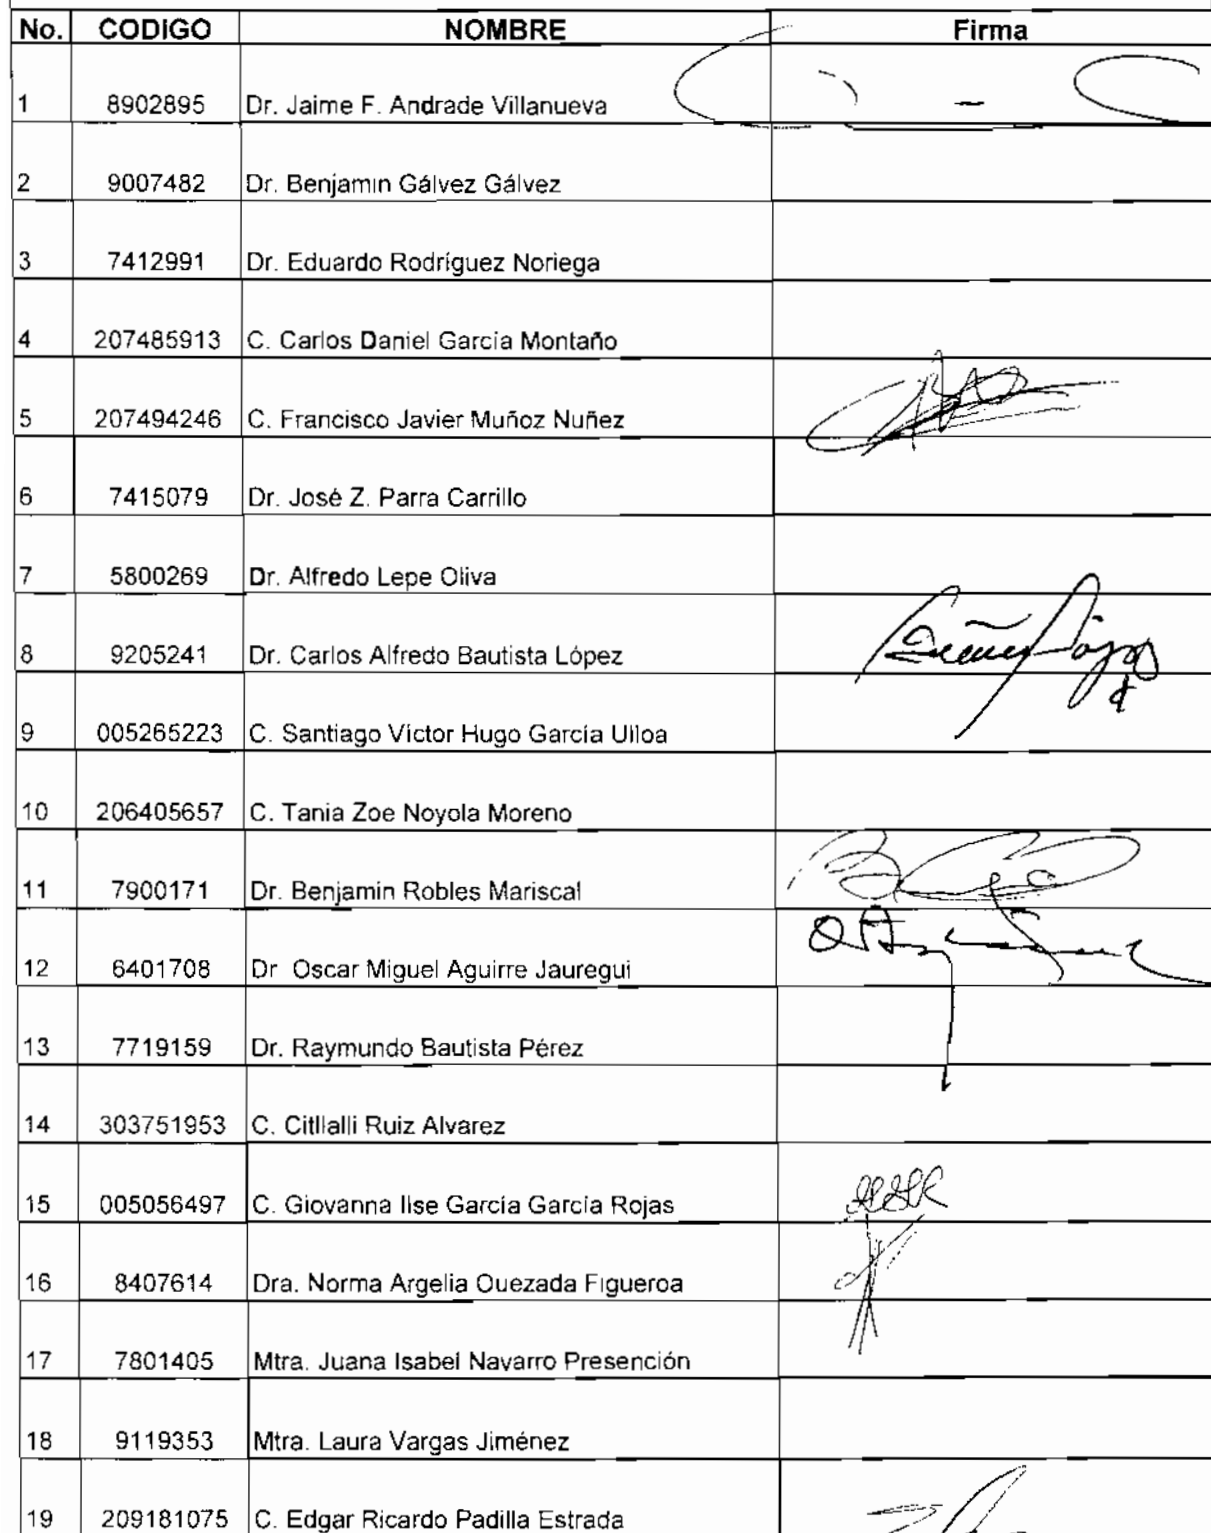 No. CODIGO NOMBRE Firma
1 8902895 Dr. Jaime F. Andrade Villanueva
2 9007482 Dr. Benjamin Gálvez Gálvez
3 7412991 Dr. Eduardo Rodríguez Noriega
4 207485913 C. Carlos Daniel García Montaño
5 207494246 C. Francisco Javier Muñoz Nuñez
6 7415079 Dr. José Z. Parra Carrillo
7 5800269 Dr. Alfredo Lepe Oliva
8 9205241 Dr. Carlos Alfredo Bautista López
9 005265223 C. Santiago Víctor Hugo García Ulloa
10 206405657 C. Tania Zoe Noyola Moreno
11 7900171 Dr. Benjamin Robles Mariscal
12 6401708 Dr Oscar Miguel Aguirre Jauregui
13 7719159 Dr. Raymundo Bautista Pérez
14 303751953 C. Citllalli Ruiz Alvarez
15 005056497 C. Giovanna Ilse García García Rojas
16 8407614 Dra. Norma Argelia Quezada Figueroa
17 7801405 Mtra. Juana Isabel Navarro Presención
18 9119353 Mtra. Laura Vargas Jiménez
19 209181075 C. Edgar Ricardo Padilla Estrada